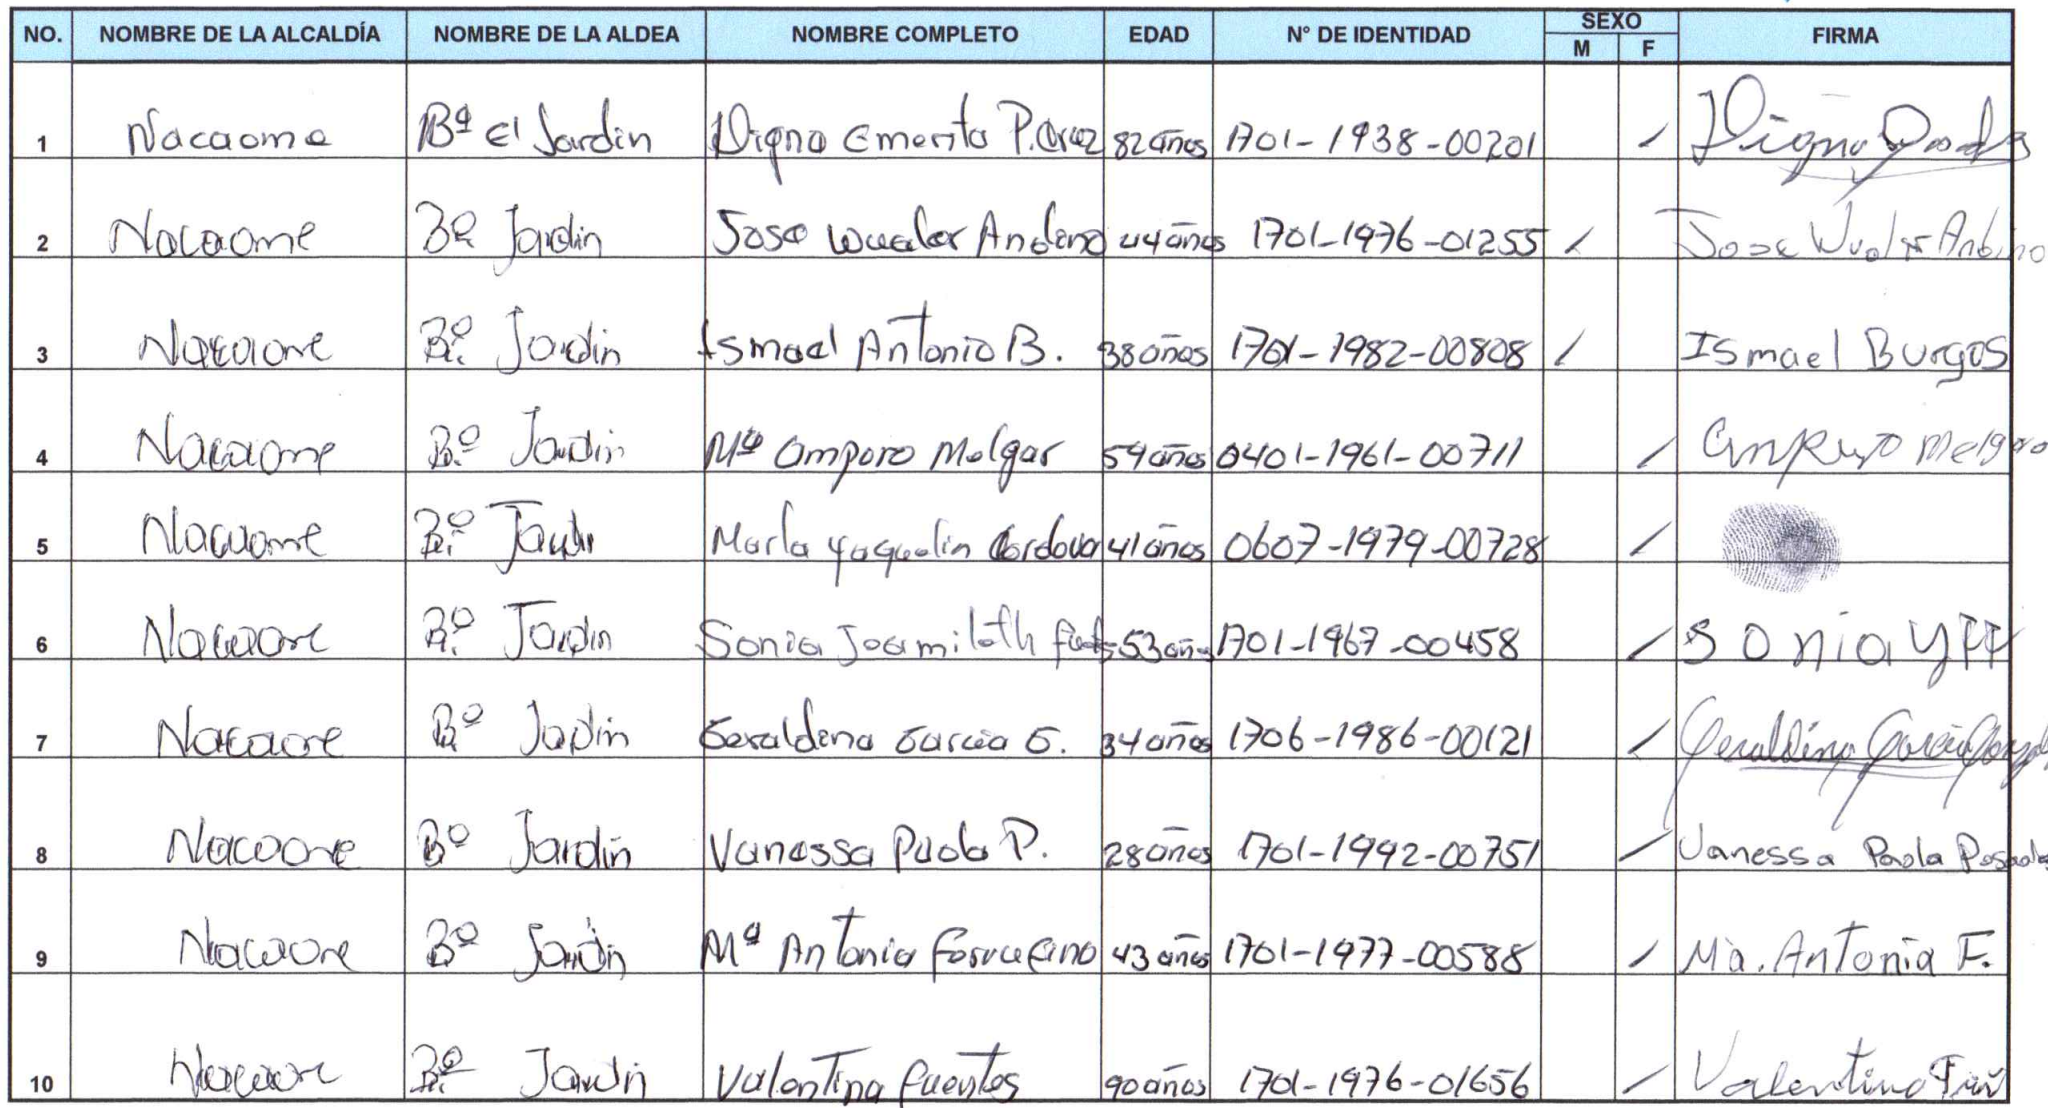 NO. NOMBRE DE LA ALCALDÍA NOMBRE DE LA ALDEA NOMBRE COMPLETO EDAD N° DE IDENTIDAD SEXO M F FIRMA
1 Nacaome Bº El Jardin Digna Emerita P. Cruz 82 años 1701-1938-00201 / Digna
2 Nacaome Bº Jardin Jose Wualer Andino 44 años 1701-1976-01255 / Jose Andino
3 Nacaome Bº Jardin Ismael Antonio B. 38 años 1701-1982-00808 / Ismael Burgos
4 Nacaome Bº Jardin Mª Amparo Melgar 59 años 0401-1961-00711 / Amparo Melgar
5 Nacaome Bº Jardin Marla Yaquelin Cordova 41 años 0607-1979-00728 /
6 Nacaome Bº Jardin Sonia Joamileth 53 años 1701-1967-00458 / Sonia YFF
7 Nacaome Bº Jardin Geraldina Garcia G. 34 años 1706-1986-00121 / Geraldina Garcia
8 Nacaome Bº Jardin Vanessa Paola P. 28 años 1701-1992-00751 / Vanessa Paola Posadas
9 Nacaome Bº Jardin Mª Antonia 43 años 1701-1977-00588 / Ma. Antonia F.
10 Nacaome Bº Jardin Valentina Fuentes 90 años 1701-1976-01656 / Valentina